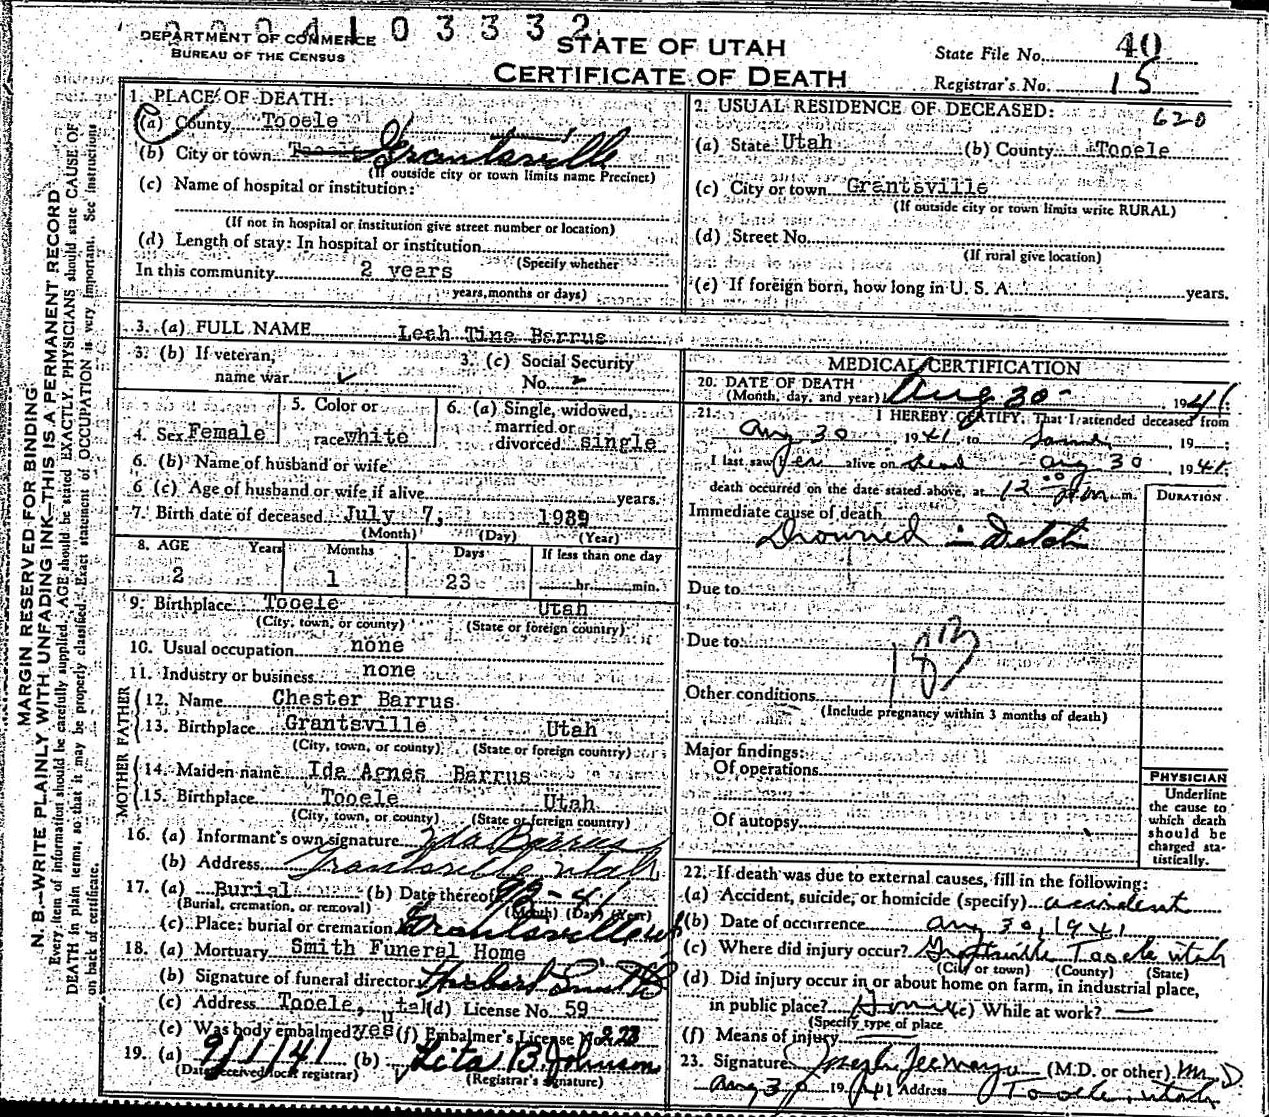 0004103332
DEPARTMENT OF COMMERCE
BUREAU OF THE CENSUS
STATE OF UTAH
CERTIFICATE OF DEATH
State File No. 40
Registrar's No. 15
MARGIN RESERVED FOR BINDING
N. B.—WRITE PLAINLY WITH UNFADING INK—THIS IS A PERMANENT RECORD
Every item of information should be carefully supplied. AGE should be stated EXACTLY. PHYSICIANS should state CAUSE OF
DEATH in plain terms, so that it may be properly classified. Exact statement of OCCUPATION is very important. See instructions
on back of certificate.
1. PLACE OF DEATH:
(a) County Tooele
(b) City or town Tooele Grantsville
(If outside city or town limits name Precinct)
(c) Name of hospital or institution:
(If not in hospital or institution give street number or location)
(d) Length of stay: In hospital or institution
(Specify whether
In this community 2 years
years, months or days)
2. USUAL RESIDENCE OF DECEASED: 620
(a) State Utah (b) County Tooele
(c) City or town Grantsville
(If outside city or town limits write RURAL)
(d) Street No.
(If rural give location)
(e) If foreign born, how long in U. S. A. years.
3. (a) FULL NAME Leah Tina Barrus
3. (b) If veteran,
name war
3. (c) Social Security
No.
4. Sex Female
5. Color or
race white
6. (a) Single, widowed,
married or
divorced single
6. (b) Name of husband or wife
6 (c) Age of husband or wife if alive years.
7. Birth date of deceased July 7, 1939
(Month) (Day) (Year)
8. AGE Years Months Days If less than one day
2 1 23 hr. min.
9. Birthplace Tooele Utah
(City, town, or county) (State or foreign country)
10. Usual occupation none
11. Industry or business none
FATHER
12. Name Chester Barrus
13. Birthplace Grantsville Utah
(City, town, or county) (State or foreign country)
MOTHER
14. Maiden name Ida Agnes Barrus
15. Birthplace Tooele Utah
(City, town, or county) (State or foreign country)
16. (a) Informant's own signature Ida Barrus
(b) Address Grantsville Utah
17. (a) Burial (b) Date thereof 9/2-41
(Burial, cremation, or removal) (Month) (Day) (Year)
(c) Place: burial or cremation Grantsville Ut
18. (a) Mortuary Smith Funeral Home
(b) Signature of funeral director Herbert Smith
(c) Address Tooele, Utah (d) License No. 59
(e) Was body embalmed? yes (f) Embalmer's License No. 223
19. (a) 9/1/41 (b) Lita B. Johnson
(Date received local registrar) (Registrar's signature)
MEDICAL CERTIFICATION
20. DATE OF DEATH
(Month, day, and year) Aug 30 - 1941
21. I HEREBY CERTIFY, That I attended deceased from
Aug 30 1941 to same 19
I last saw her alive on dead Aug 30, 1941
death occurred on the date stated above, at 12:00 m.
Immediate cause of death
DURATION
Drowned in Ditch
Due to
Due to
183
Other conditions
(Include pregnancy within 3 months of death)
Major findings:
Of operations
Of autopsy
PHYSICIAN
Underline
the cause to
which death
should be
charged sta-
tistically.
22. If death was due to external causes, fill in the following:
(a) Accident, suicide, or homicide (specify) accident
(b) Date of occurrence Aug 30, 1941
(c) Where did injury occur? Grantsville Tooele Utah
(City or town) (County) (State)
(d) Did injury occur in or about home on farm, in industrial place,
in public place? Home (e) While at work? —
(Specify type of place
(f) Means of injury
23. Signature Joseph (M.D. or other) M.D
Aug 30 1941 Address Tooele, Utah